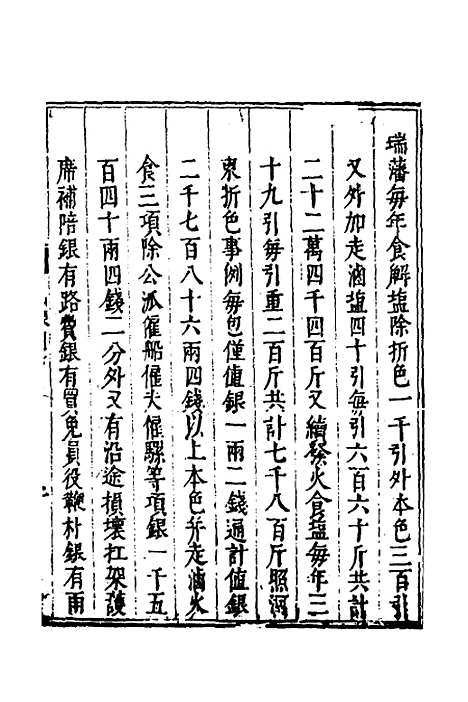 瑞藩每年食解塩除折色一千引外本色三百引
又外加走滷塩四十引每引六百六十斤共計
二十二萬四千四百斤又續發火食塩每年三
十九引每引重二百斤共計七千八百斤照河
東折色事例每包僅值銀一兩二錢通計值銀
二千七百八十六兩四錢以上本色并走滷火
食三項除公派僱船僱夫僱騾等項銀一千五
百四十兩四錢二分外又有沿途損壞扛架護
席補陪銀有路費銀有買免員役鞭朴銀有雨